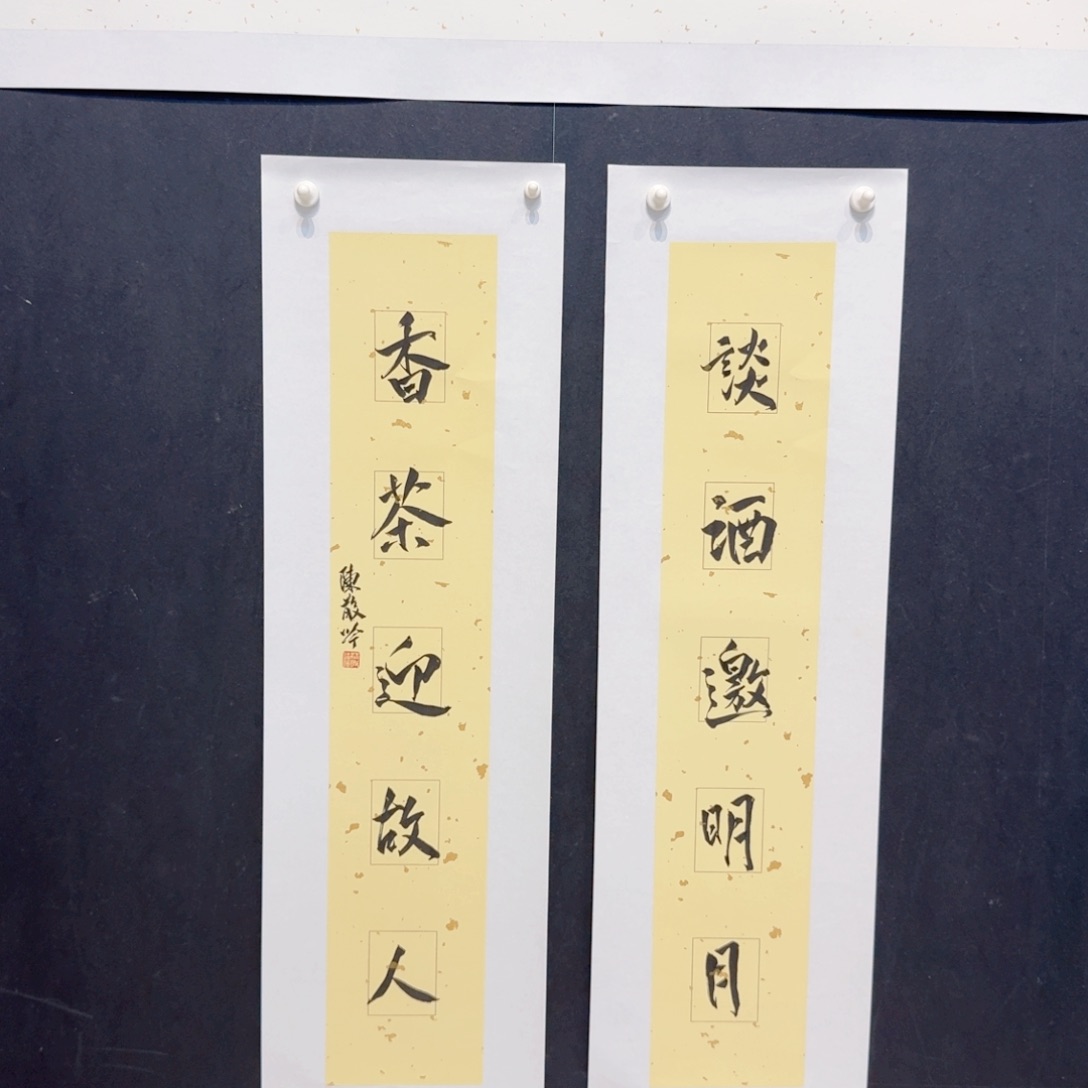 談酒邀明月
香茶迎故人
陳散吟